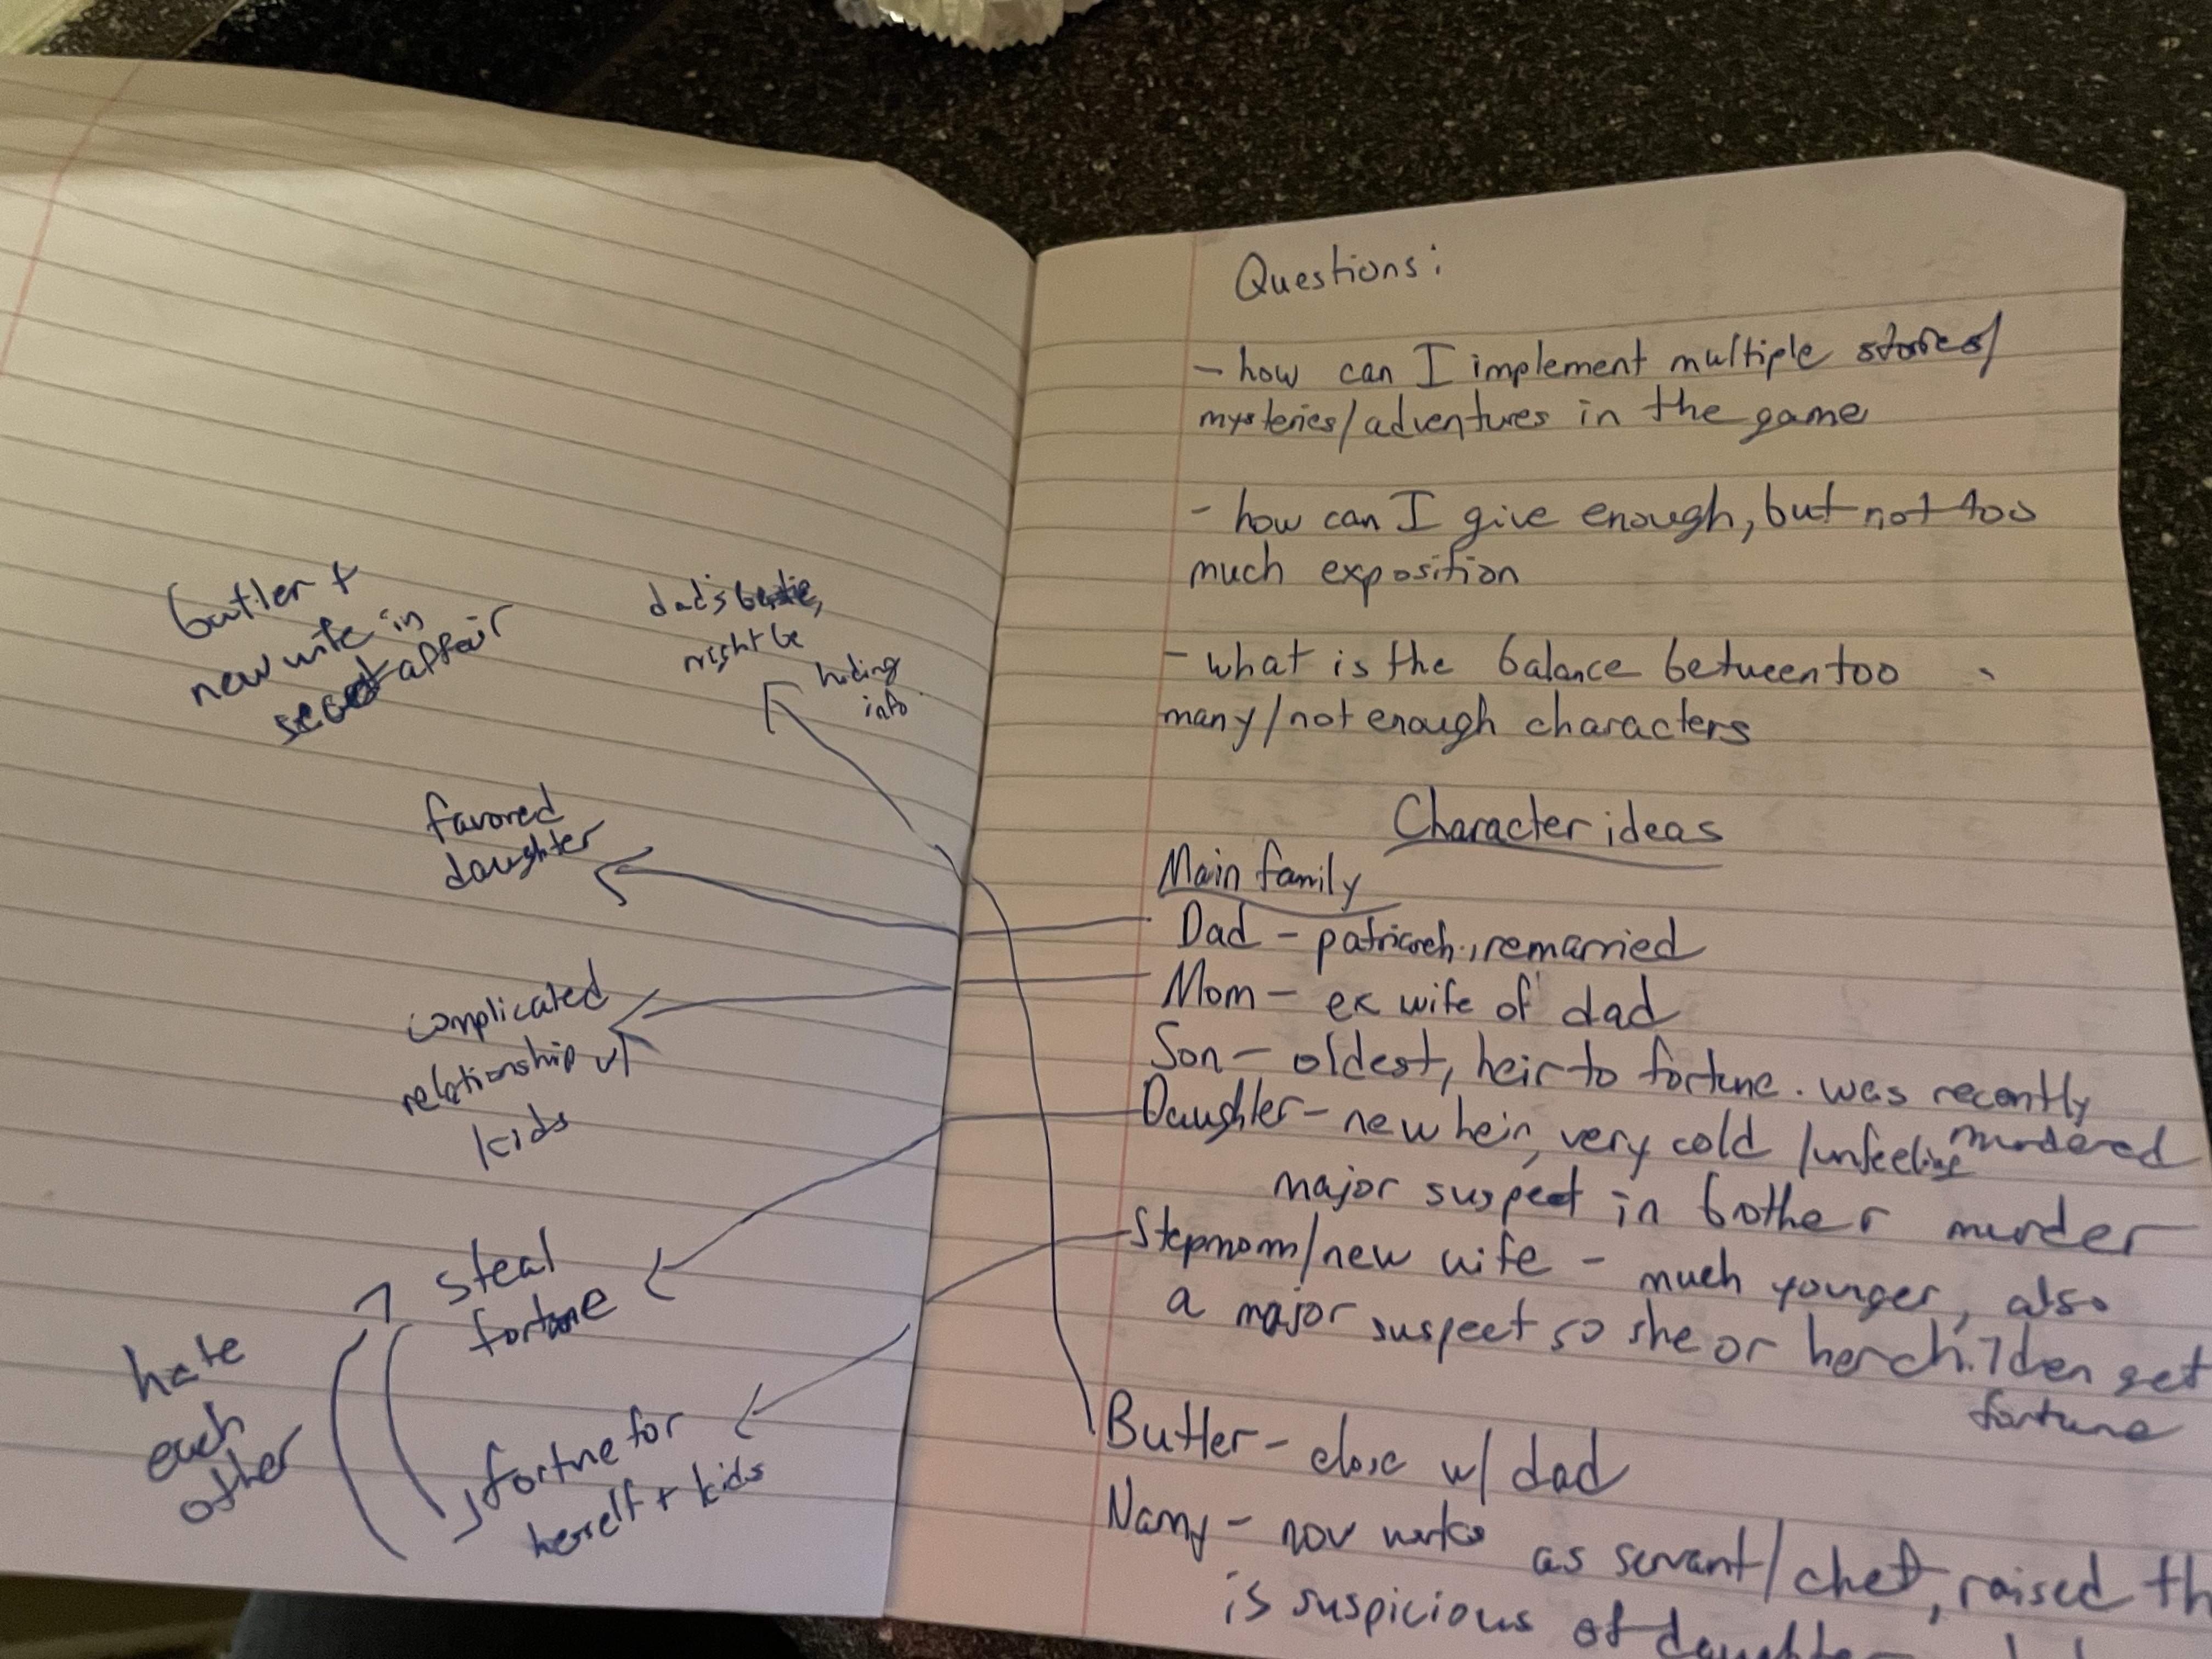 butler +
new wife in
secret affair
dad's bestie,
might be
hiding
info.
favored
daughter
complicated
relationship w/
kids
steal
fortune
hate
each
other
fortune for
herself + kids
Questions:
- how can I implement multiple stories/
mysteries/adventures in the game
- how can I give enough, but not too
much exposition
- what is the balance between too
many/not enough characters
Character ideas
Main family
Dad - patriarch, remarried
Mom - ex wife of dad
Son - oldest, heir to fortune. was recently
murdered
Daughter - new heir, very cold /unfeeling
major suspect in brother murder
Stepmom/new wife - much younger, also
a major suspect so she or her children get
fortune
Butler - close w/ dad
Nanny - now works as servant/chef, raised th
is suspicious of daughter